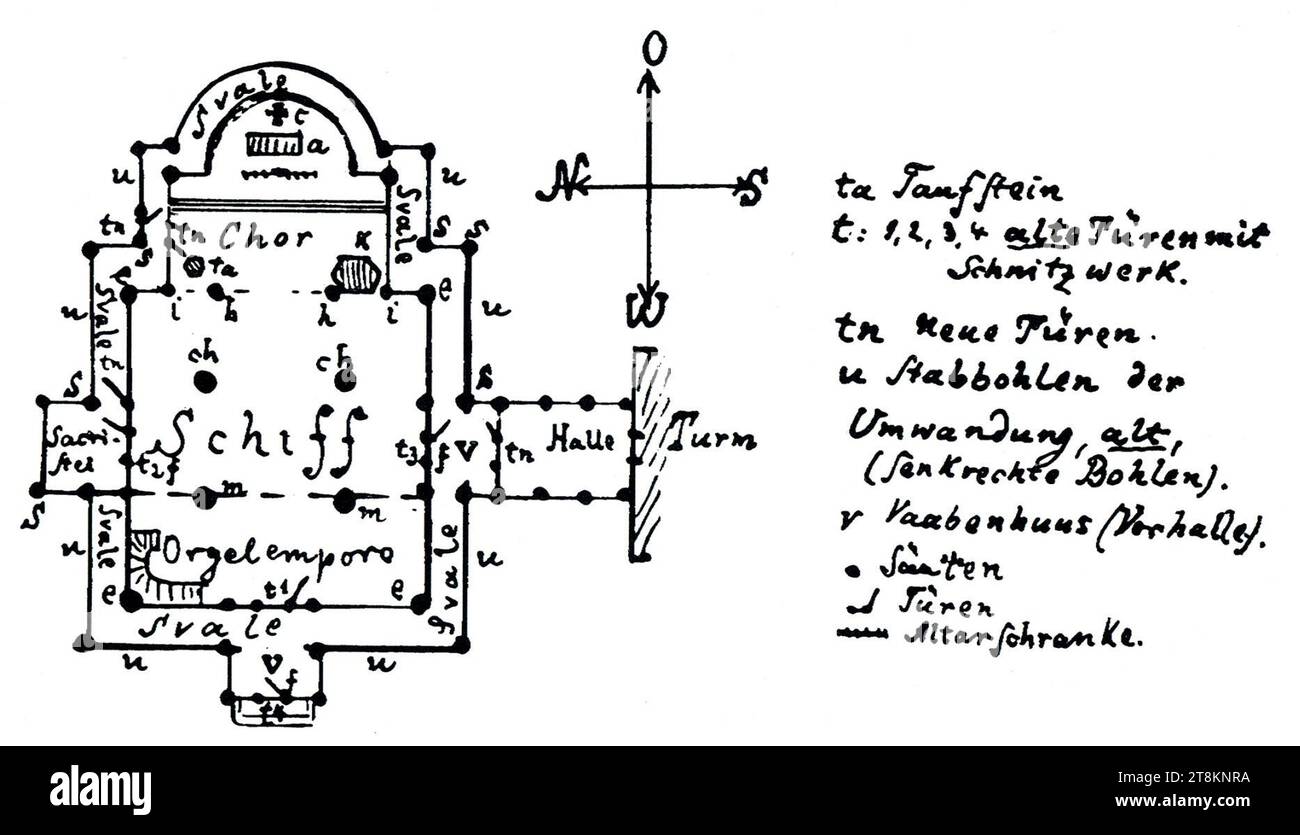 Svale
c
a
u
u
Svale
tn
tn
Chor
k
s
s
s
ta
e
i
h
h
i
e
u
Svale
t
u
ch
ch
s
s
Schiff
Sacri-
stei
t2 f
t3 f
V
tn
Halle
Turm
s
m
m
u
Svale
Orgelempore
Svale
u
e
t1
e
Svale
u
V
u
f
t4
O
N
S
W
ta Taufstein
t: 1, 2, 3, 4 alte Türen mit
Schnitzwerk.
tn Neue Türen.
u Stabbohlen der
Umwandung, alt,
(senkrechte Bohlen).
v Vaabenhuus (Vorhalle).
Säulen
Türen
Altarschranke.
alamy
Image ID: 2T8KNRA
www.alamy.com